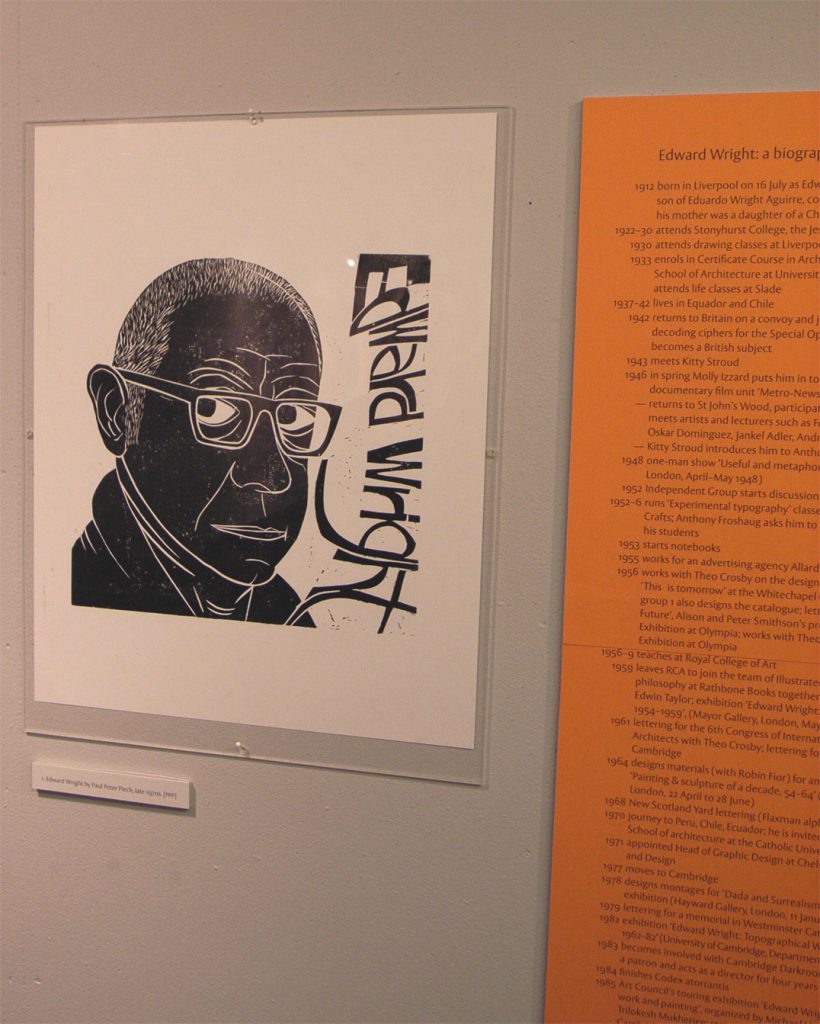 Edward Wright
1. Edward Wright by Paul Peter Piech, late 1970s. [PPP]
Edward Wright: a biograp
1912 born in Liverpool on 16 July as Edw
son of Eduardo Wright Aguirre, co
his mother was a daughter of a Ch
1922–30 attends Stonyhurst College, the Jes
1930 attends drawing classes at Liverpoo
1933 enrols in Certificate Course in Arch
School of Architecture at Universit
attends life classes at Slade
1937–42 lives in Equador and Chile
1942 returns to Britain on a convoy and j
decoding ciphers for the Special Op
becomes a British subject
1943 meets Kitty Stroud
1946 in spring Molly Izzard puts him in to
documentary film unit ‘Metro-News
— returns to St John’s Wood, participat
meets artists and lecturers such as F
Oskar Dominguez, Jankel Adler, Andr
— Kitty Stroud introduces him to Antho
1948 one-man show ‘Useful and metaphor
London, April–May 1948)
1952 Independent Group starts discussion
1952–6 runs ‘Experimental typography’ classe
Crafts; Anthony Froshaug asks him to
his students
1953 starts notebooks
1955 works for an advertising agency Allard
1956 works with Theo Crosby on the design
‘This is tomorrow’ at the Whitechapel
group 1 also designs the catalogue; lett
Future’, Alison and Peter Smithson’s pr
Exhibition at Olympia; works with Theo
Exhibition at Olympia
1956–9 teaches at Royal College of Art
1959 leaves RCA to join the team of Illustrate
philosophy at Rathbone Books together
Edwin Taylor; exhibition ‘Edward Wright:
1954–1959’, (Mayor Gallery, London, May
1961 lettering for the 6th Congress of Internat
Architects with Theo Crosby; lettering fo
Cambridge
1964 designs materials (with Robin Fior) for an
‘Painting & sculpture of a decade, 54–64’ (
London, 22 April to 28 June)
1968 New Scotland Yard lettering (Flaxman alp
1970 journey to Peru, Chile, Ecuador; he is invite
School of architecture at the Catholic Unive
1971 appointed Head of Graphic Design at Chel
and Design
1977 moves to Cambridge
1978 designs montages for ‘Dada and Surrealism
exhibition (Hayward Gallery, London, 11 Janu
1979 lettering for a memorial in Westminster Cat
1982 exhibition ‘Edward Wright: Topographical W
1962–82’ (University of Cambridge, Departmen
1983 becomes involved with Cambridge Darkroo
a patron and acts as a director for four years
1984 finishes Codex atorrantis
1985 Art Council’s touring exhibition ‘Edward Wrig
work and painting’, organized by Michael
Trilokesh Mukherjee;